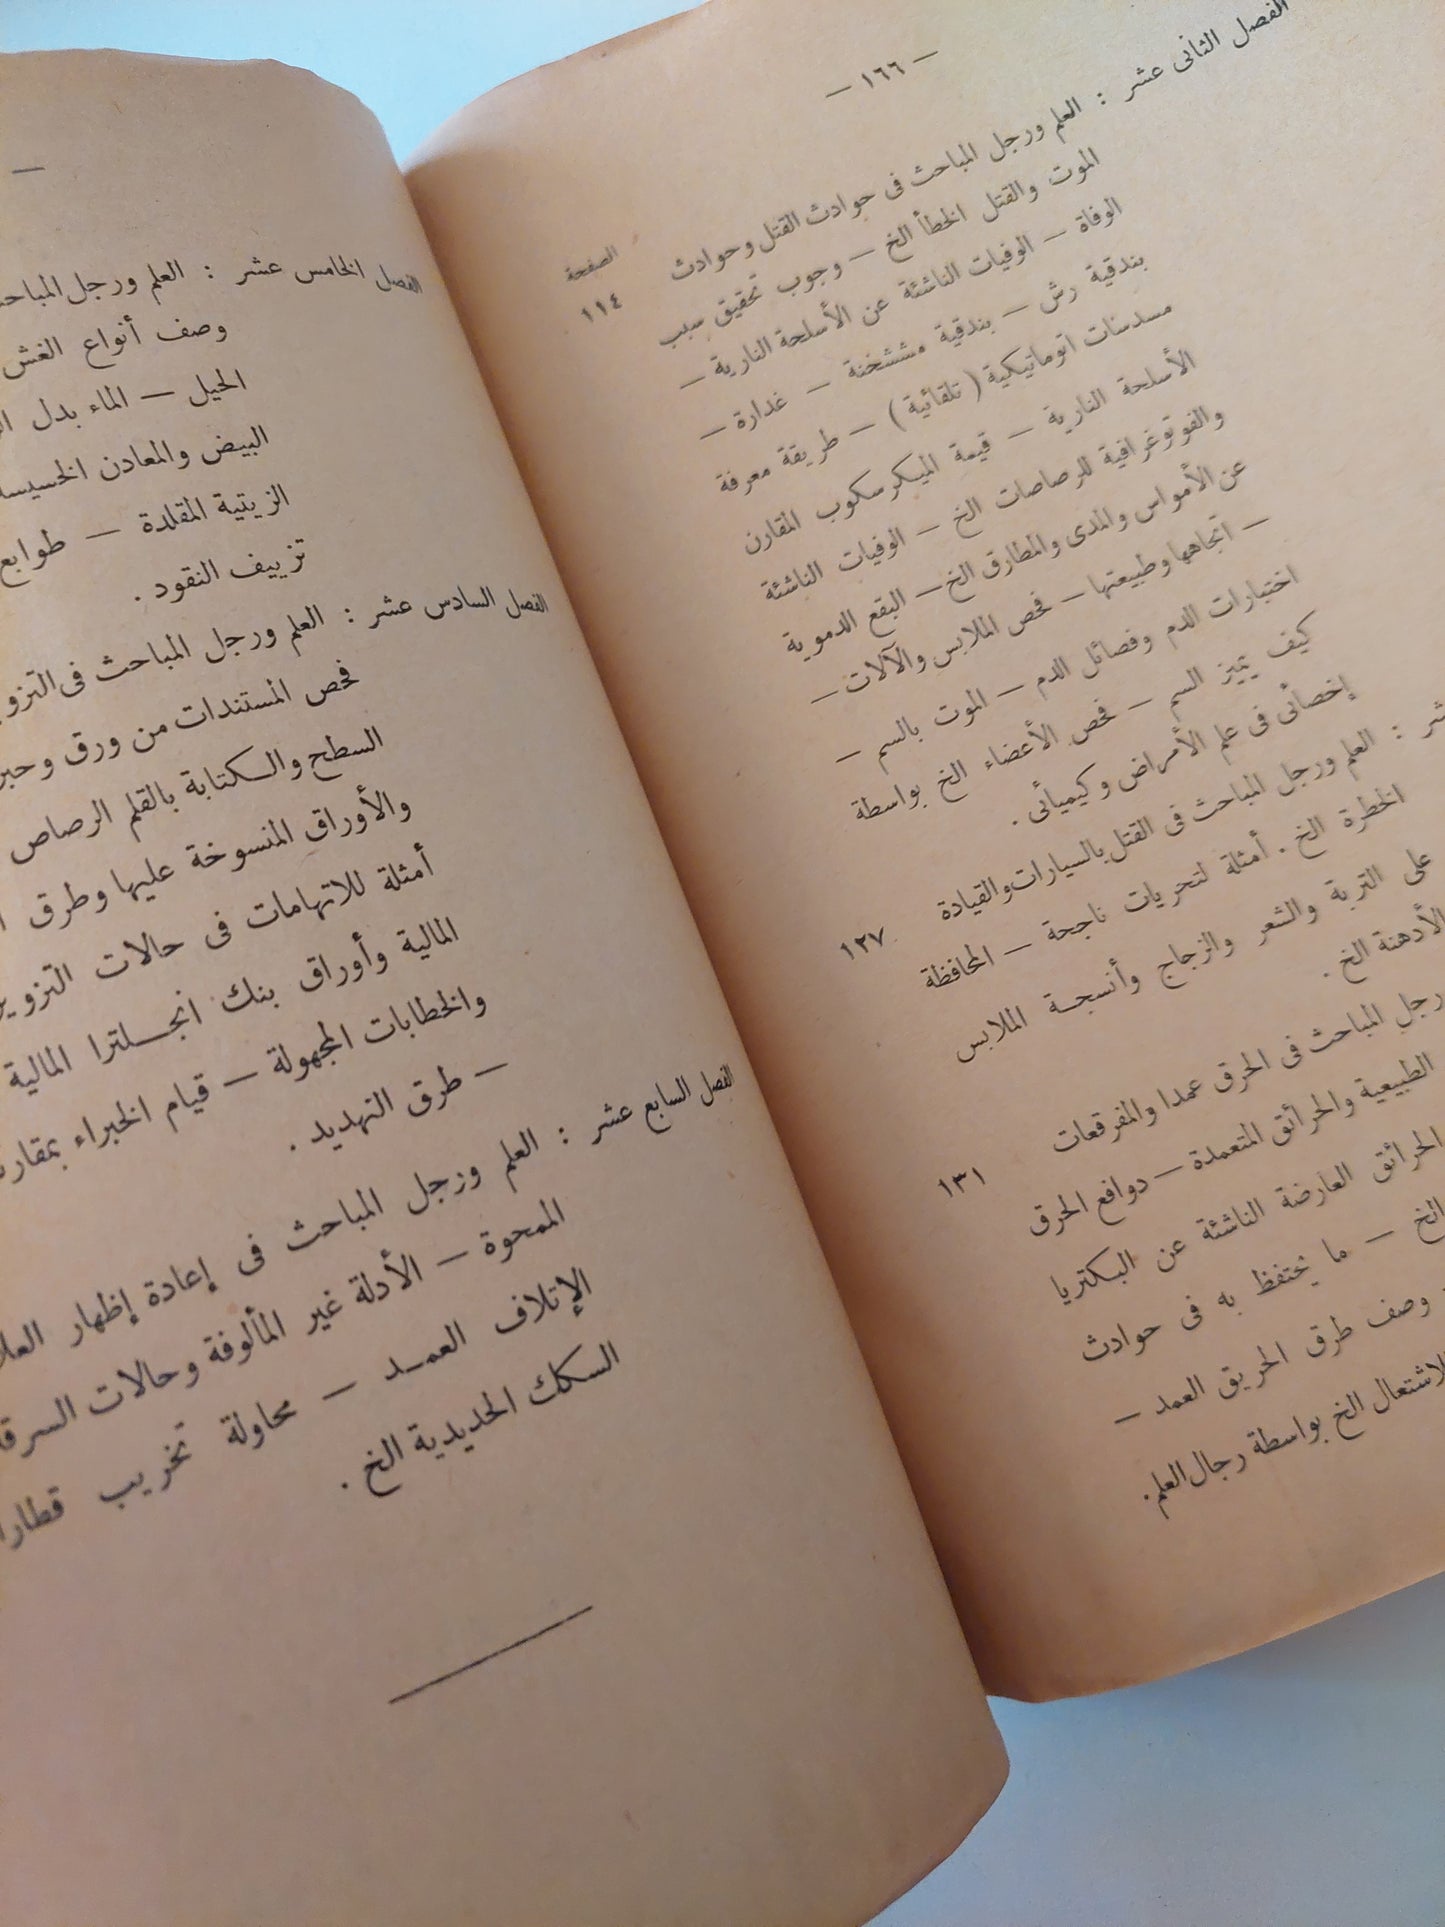 — ١٦٦ —
الفصل الثانى عشر : العلم ورجل المباحث فى حوادث القتل وحوادث
الصفحة
الموت والقتل الخطأ الخ — وجوب تحقيق سبب
١١٤
الوفاة — الوفيات الناشئة عن الأسلحة النارية —
بندقية رش — بندقية مششخنة — غدارة —
مسدسات اتوماتيكية ( تلقائية ) — طريقة معرفة
الأسلحة النارية — قيمة الميكرسكوب المقارن
والفوتوغرافية للرصاصات الخ — الوفيات الناشئة
عن الأمواس والمدى والمطارق الخ — البقع الدموية
— اتجاهها وطبيعتها — فحص الملابس والآلات —
اختبارات الدم وفصائل الدم — الموت بالسم —
كيف يميز السم — فحص الأعضاء الخ بواسطة
إخصائى فى علم الأمراض وكيميائى .
شر : العلم ورجل المباحث فى القتل بالسيارات والقيادة
الخطرة الخ . أمثلة لتحريات ناجحة — المحافظة
١٢٧
على التربة والشعر والزجاج وأنسجة الملابس
الأدهنة الخ .
رجل المباحث فى الحرق عمدا والمفرقعات
الطبيعية والحرائق المتعمدة — دوافع الحرق
١٣١
الحرائق العارضة الناشئة عن البكتريا
الخ — ما يحتفظ به فى حوادث
وصف طرق الحريق العمد —
الاشتعال الخ بواسطة رجال العلم .
—
الفصل الخامس عشر : العلم ورجل المباحث
وصف أنواع الغش
الحيل — الماء بدل
البيض والمعادن الخسيسة
الزيتية المقلدة — طوابع
تزييف النقود .
الفصل السادس عشر : العلم ورجل المباحث فى التزوير
فحص المستندات من ورق وحبر
السطح والكتابة بالقلم الرصاص
والأوراق المنسوخة عليها وطرق
أمثلة للاتهامات فى حالات التزوير
المالية وأوراق بنك انجلترا المالية
والخطابات المجهولة — قيام الخبراء بمقارنة
— طرق التهديد .
الفصل السابع عشر : العلم ورجل المباحث فى إعادة إظهار
الممحوة — الأدلة غير المألوفة وحالات السرقة
الإتلاف العمد — محاولة تخريب قطار
السكك الحديدية الخ .